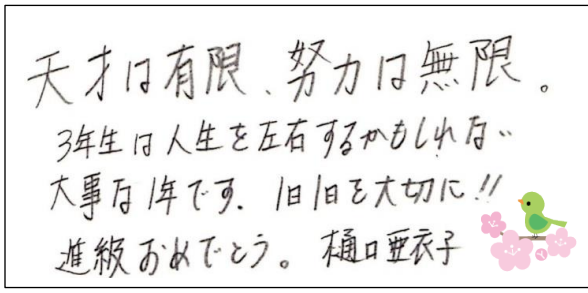 天才は有限、努力は無限。
3年生は人生を左右するかもしれない
大事な1年です。1日1日を大切に!!
進級おめでとう。樋口亜衣子